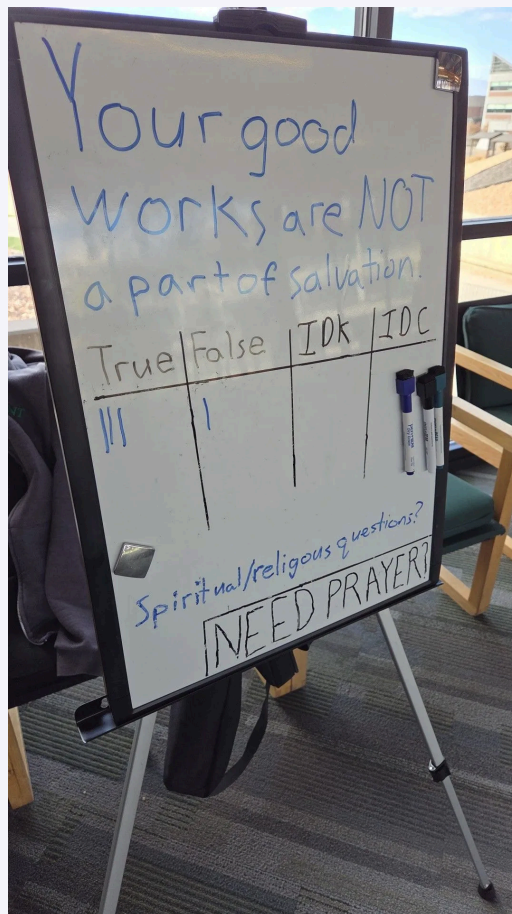 Your good
works are NOT
a part of salvation.
True False IDK IDC
||| |
Spiritual/religous questions?
NEED PRAYER?